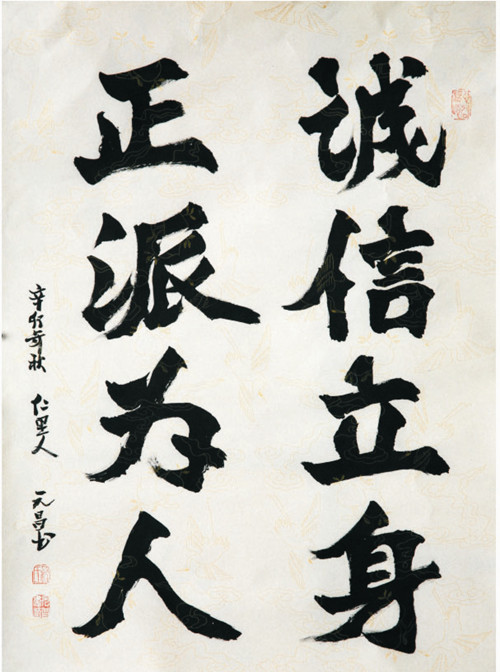 诚信立身
正派为人
辛卯年秋 仁里人 元昌书